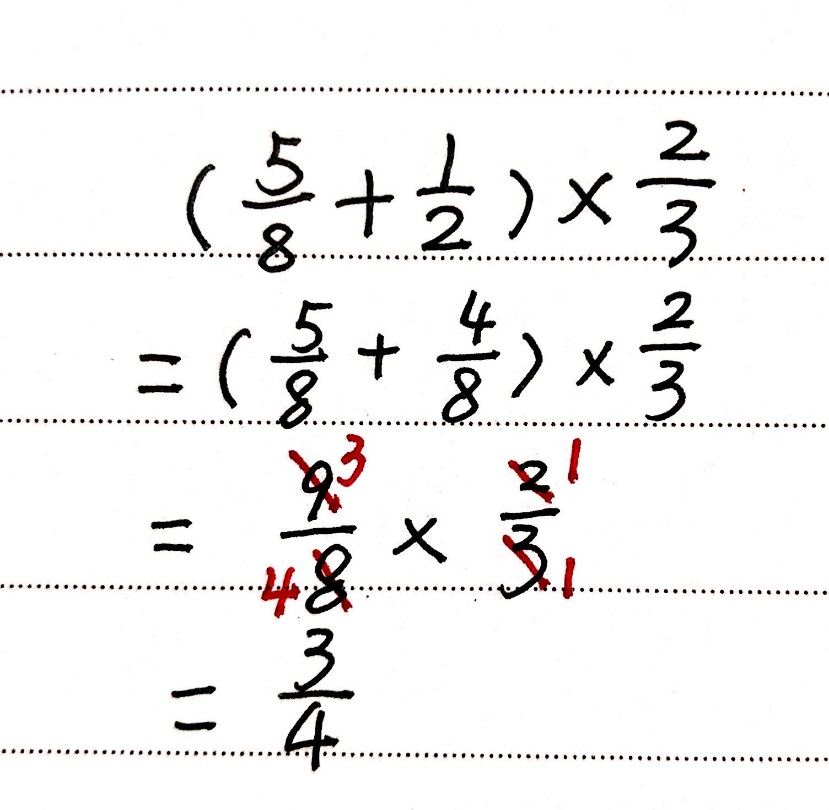 (5/8 + 1/2) × 2/3
= (5/8 + 4/8) × 2/3
= 9 3/4 8 × 2 1/3 1
= 3/4